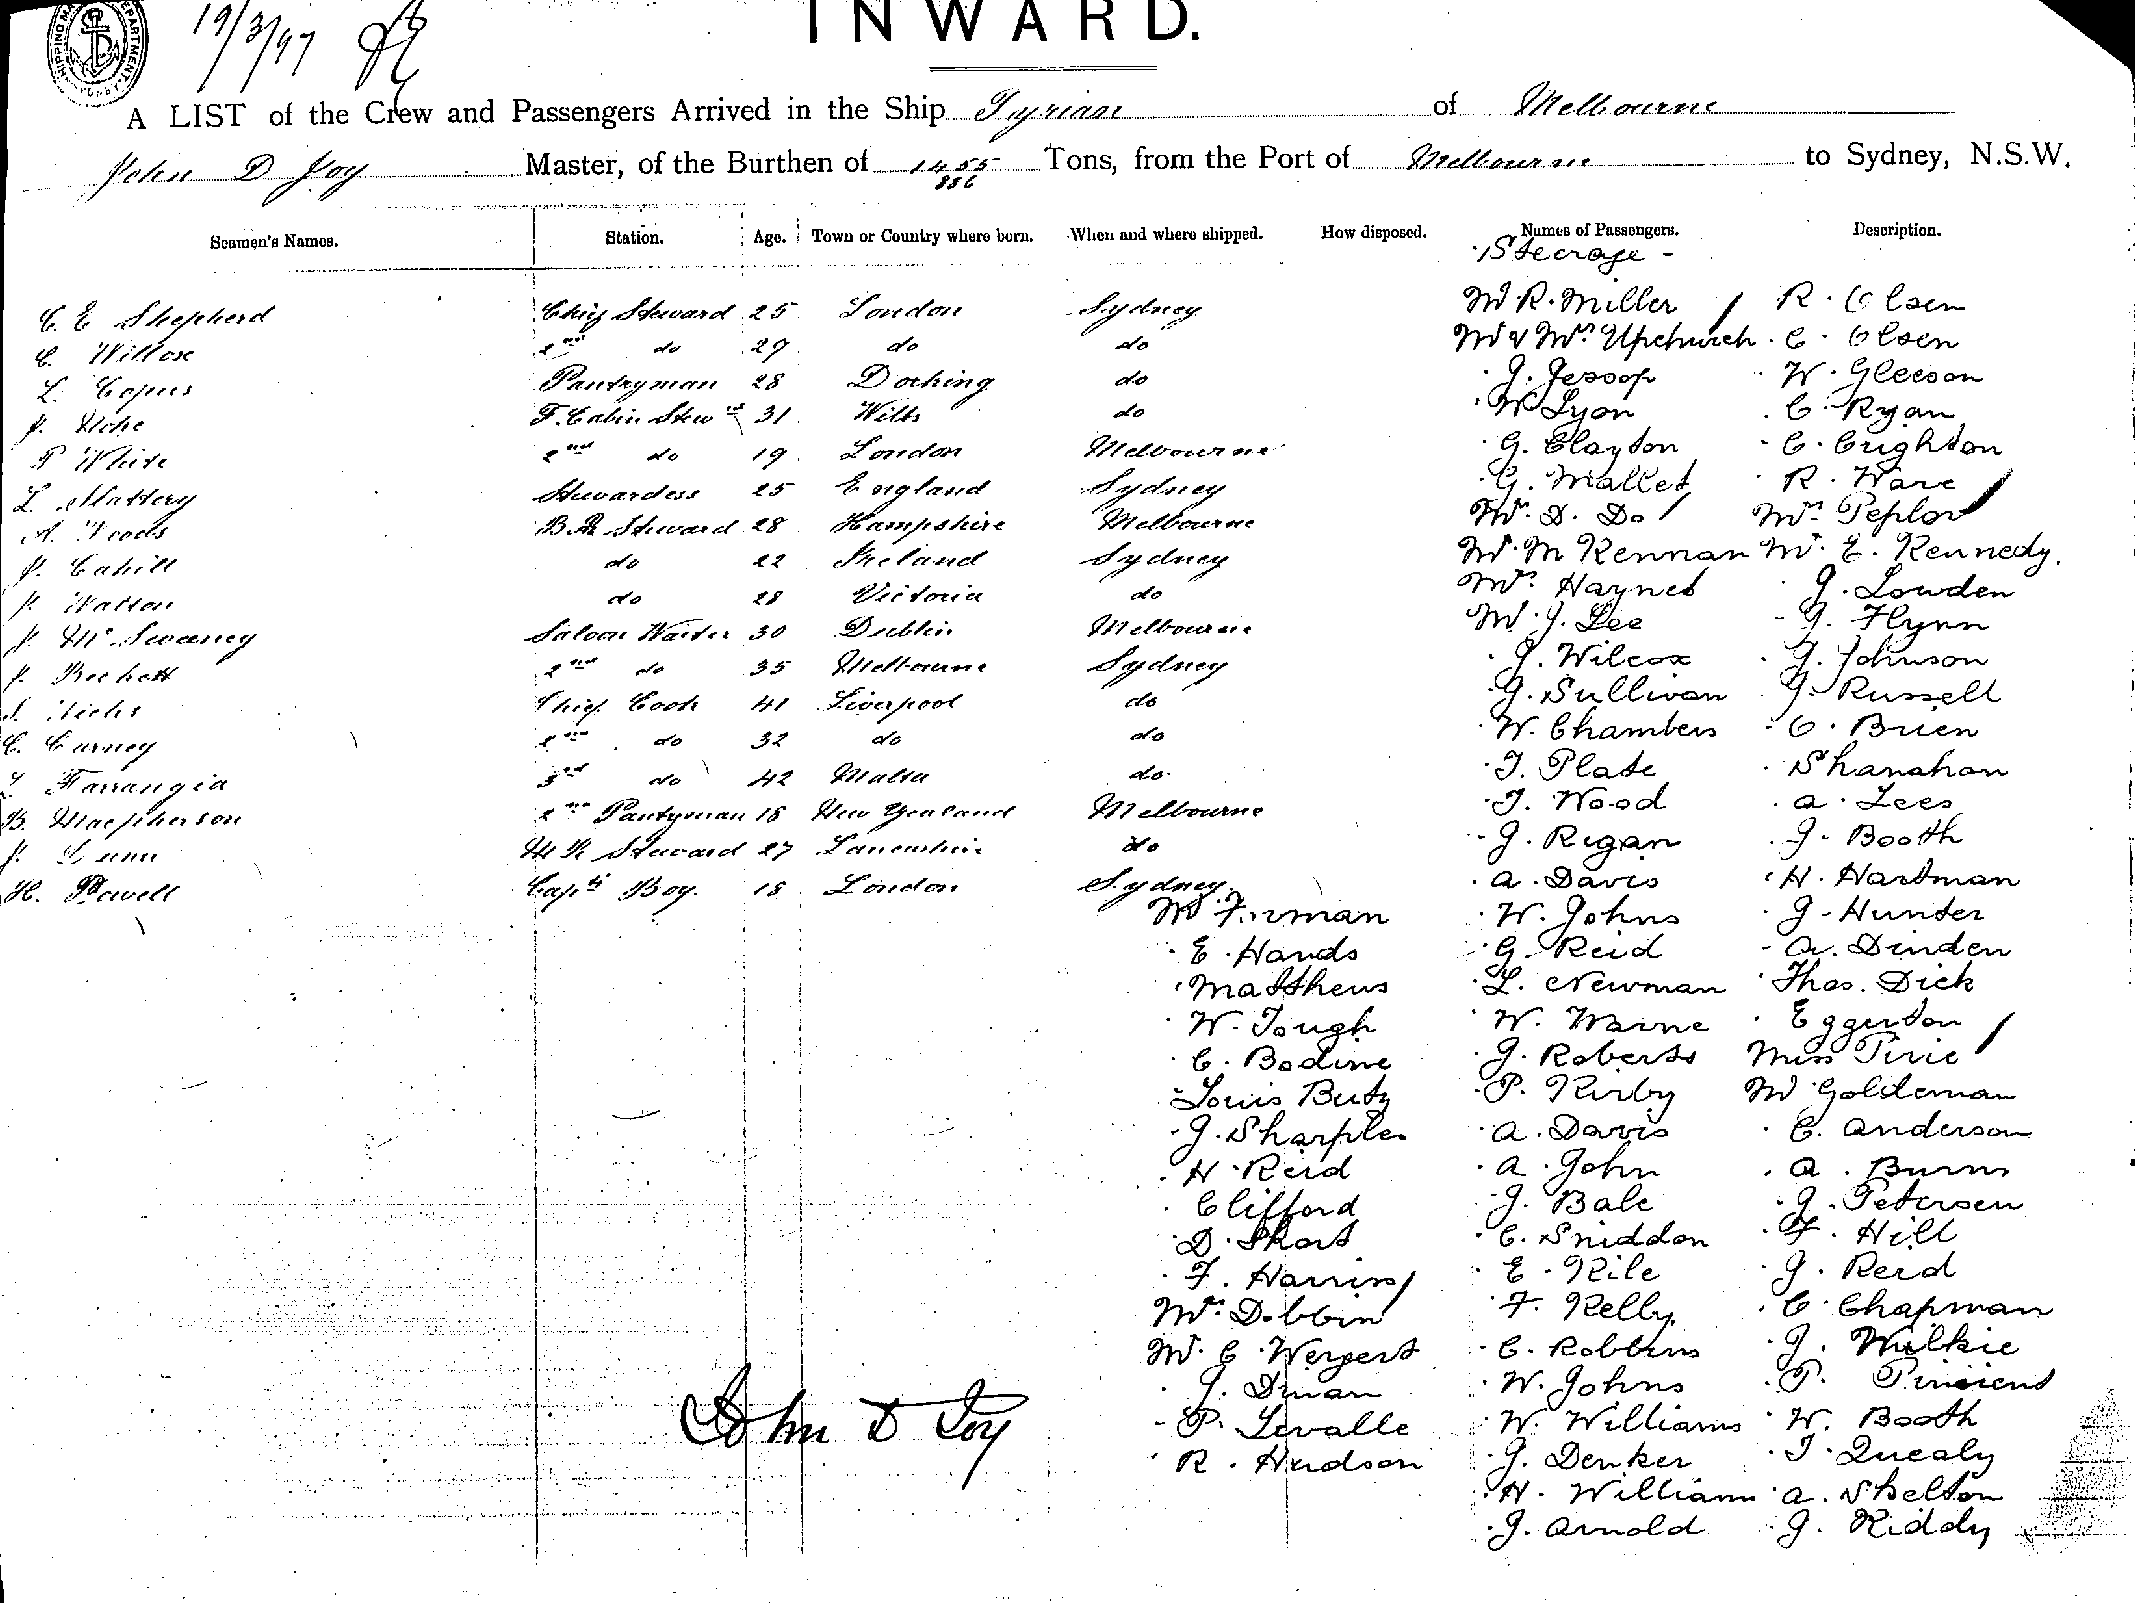 19/3/97
INWARD.
A LIST of the Crew and Passengers Arrived in the Ship Tyrian of Melbourne
John D Joy Master, of the Burthen of 1455 Tons, from the Port of Melbourne to Sydney, N.S.W.
886
Seamen's Names. Station. Age. Town or Country where born. When and where shipped. How disposed. Names of Passengers. Description.
Steerage -
C E Shepherd Chief Steward 25 London Sydney Mr R. Miller R. Olsen
C. Willox 2nd do 29 do do Mr & Mrs Upchurch C. Olsen
L Copus Pantryman 28 Dorking do J. Jessop W. Gleeson
J. F. Cabin Stewd 31 Wilts do W Lyon C. Ryan
P White 2nd do 19 London Melbourne G. Clayton C. Crighton
L Slattery Stewardess 25 England Sydney G. Mallet R. Ware
A. Woods B.R Steward 28 Hampshire Melbourne Mr. D. Do Mrs Peplow
J. Cahill do 22 Ireland Sydney Mr. M Kennan Mr. E. Kennedy.
J. Watton do 28 Victoria do Mrs Haynes J. Lowden
J. McSweeney Saloon Waiter 30 Dublin Melbourne Mr. J. Lee G. Flynn
J. Beckett 2nd do 35 Melbourne Sydney J. Wilcox J. Johnson
Hicks Chief Cook 41 Liverpool do J. Sullivan J. Russell
C. Curney 2nd do 32 do do W. Chambers O. Brien
Farrangia 3rd do 42 Malta do T. Plate Shanahan
B. Macpherson 2nd Pantyman 18 New Zealand Melbourne T. Wood A. Lees
J. Lunn M R Steward 27 Lancashire do J. Regan J. Booth
H. Powell Capts Boy. 18 London Sydney A. Davis H. Hartman
Mr Firman W. Johns J. Hunter
E. Hands G. Reid A. Dinden
Matthews L. Newman Thos. Dick
W. Tough W. Warne Eggerton
C. Bodine J. Roberts Miss Pirie
Louis Buty P. Kirby Mr Goldeman
J. Sharples A. Davis C. Anderson
H. Reid A. John A. Burns
Clifford J. Bale J. Petersen
D. Short C. Sniddon F. Hill
F. Harris E. Kile J. Reid
Mrs Dobbin F. Kelly C. Chapman
Mr. C Wergert C. Robbins J. Wilkie
J. Dinan W. Johns P.
P. Levalle W. Williams W. Booth
R. Hudson J. Denker T. Quealy
H. Williams A. Shelton
J. Arnold J. Riddy
John D Joy